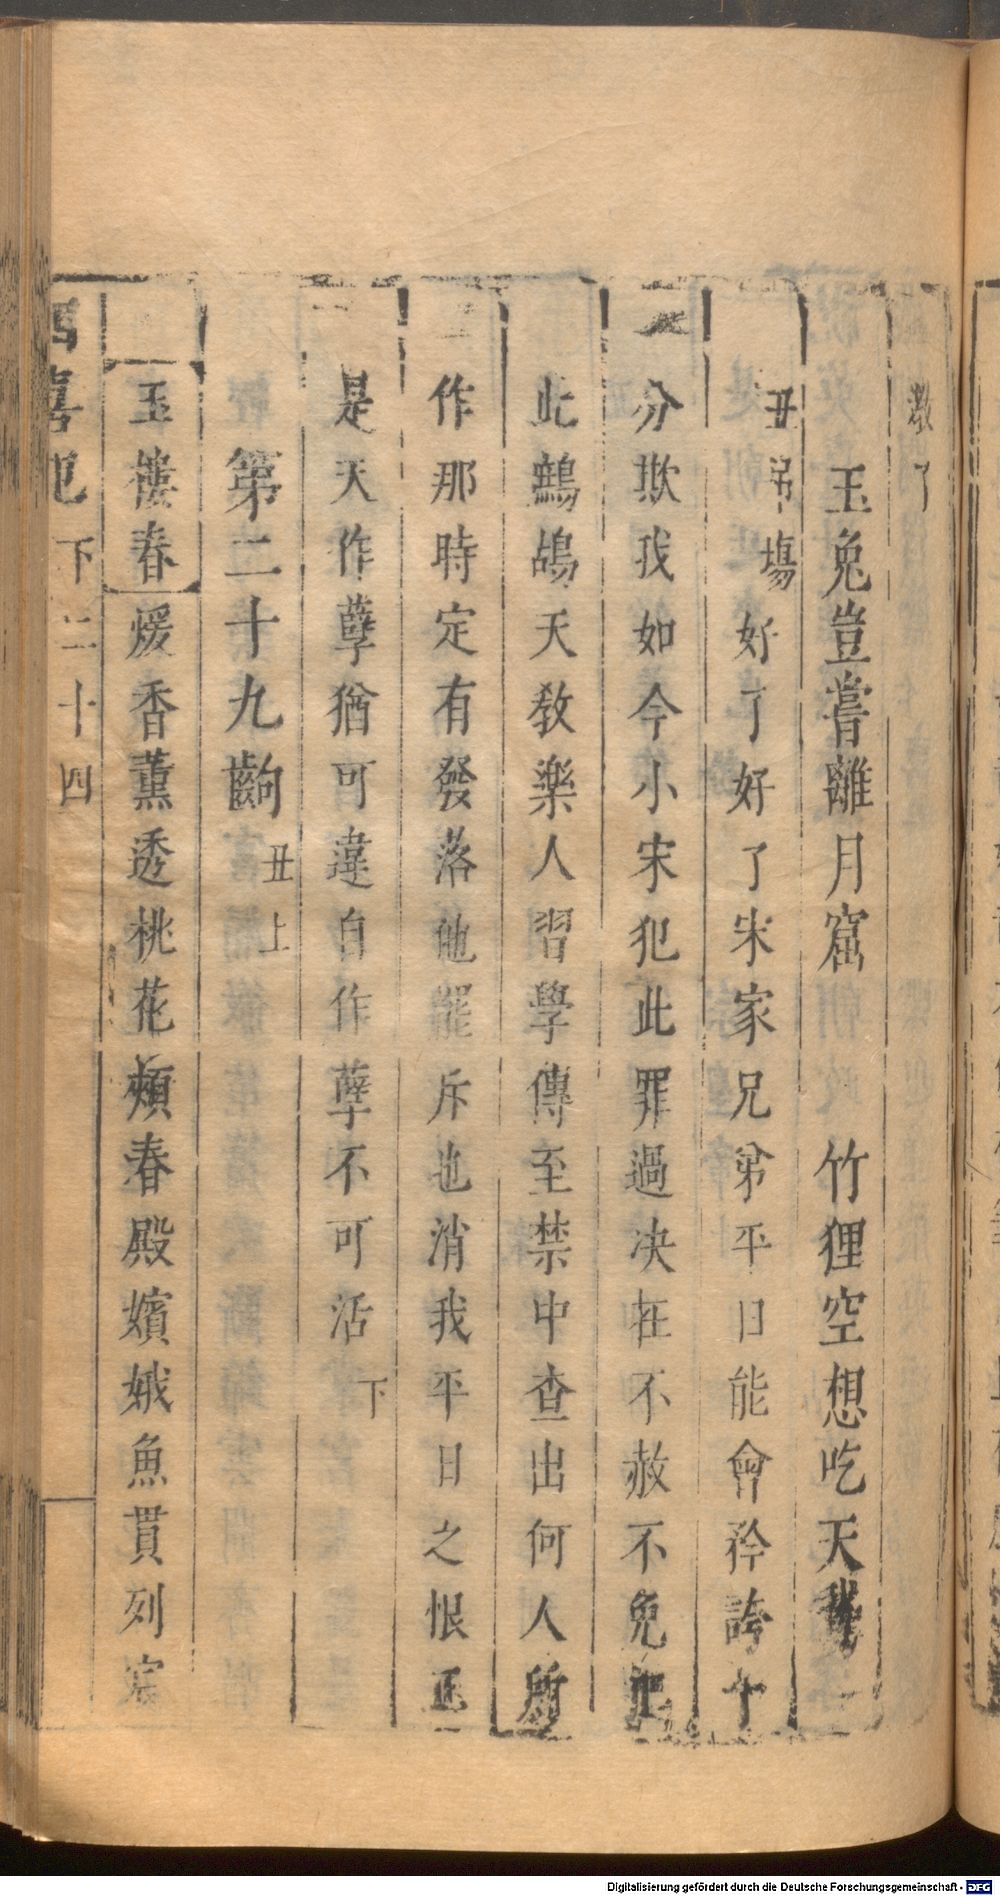 激了
玉兔豈嘗離月窟　竹狸空想吃天鵝
丑吊塲好了好了宋家兄弟平日能會矜誇十
分欺我如今小宋犯此罪過决在不赦不免把
此鷓鴣天教樂人習學傳至禁中查出何人所
作那時定有發落他罷斥也消我平日之恨正
是天作孽猶可違自作孽不可活下
第二十九齣丑上
玉樓春煖香薰透桃花頰春殿嬪娥魚貫列
四喜記　下二十四
Digitalisierung gefördert durch die Deutsche Forschungsgemeinschaft - DFG